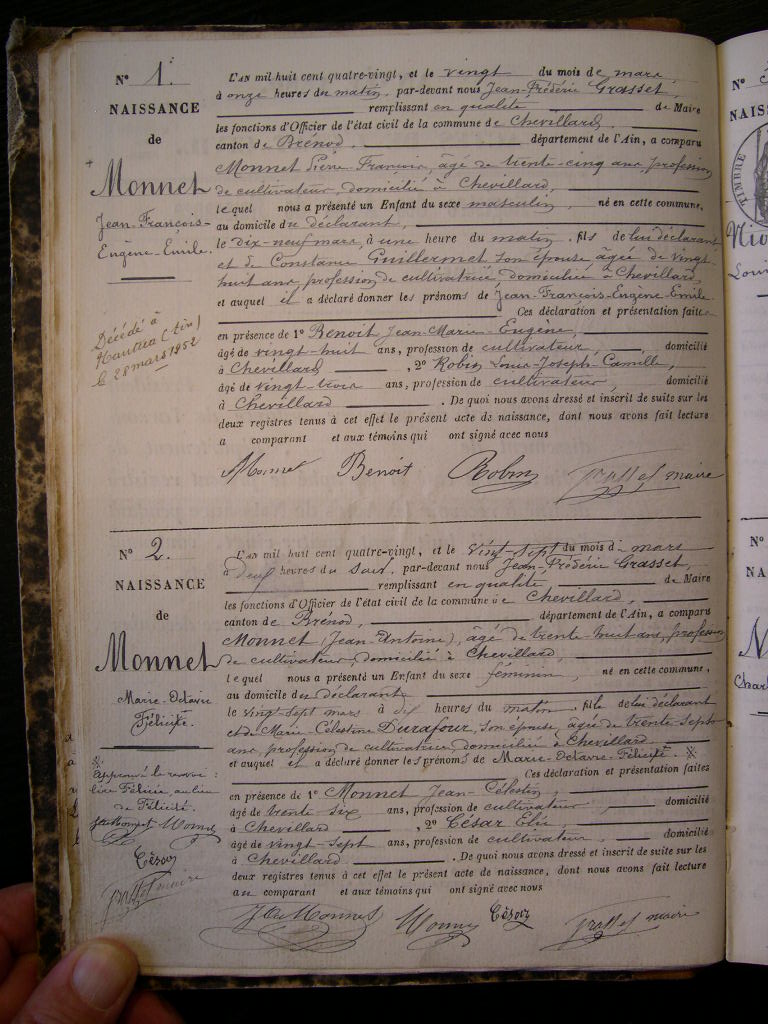 N° 1.
NAISSANCE
de
Monnet
Jean-François-
Eugène-Emile.
Décédé à
Hauteville (Ain)
le 28 mars 1952
L'AN mil huit cent quatre-vingt, et le vingt du mois de mars,
à onze heures du matin, par-devant nous Jean-Frédéric Grasset,
remplissant en qualité de Maire
les fonctions d'Officier de l'état civil de la commune de Chevillard,
canton de Brénod, département de l'Ain, a comparu
Monnet Pierre François, âgé de trente-cinq ans, profession
de cultivateur, domicilié à Chevillard,
lequel nous a présenté un Enfant du sexe masculin, né en cette commune,
au domicile du déclarant,
le dix-neuf mars, à une heure du matin, fils de lui déclarant
et de Constance Guillermet son épouse âgée de vingt-
huit ans, profession de cultivatrice, domiciliée à Chevillard,
et auquel il a déclaré donner les prénoms de Jean-François-Eugène-Emile.
Ces déclaration et présentation faites
en présence de 1° Benoit Jean-Marie-Eugène,
âgé de vingt-huit ans, profession de cultivateur, domicilié
à Chevillard, 2° Robin Louis-Joseph-Camille,
âgé de vingt-trois ans, profession de cultivateur, domicilié
à Chevillard. De quoi nous avons dressé et inscrit de suite sur les
deux registres tenus à cet effet le présent acte de naissance, dont nous avons fait lecture
a comparant et aux témoins qui ont signé avec nous
Monnet Benoit Robin Grasset maire
N° 2.
NAISSANCE
de
Monnet
Marie-Octavie
Félicité.
※
Approuvé le renvoi :
lire Félicie, au lieu
de Félicité.
Monnet
César
Grasset maire
L'AN mil huit cent quatre-vingt, et le vingt-sept du mois de mars
à deux heures du soir, par-devant nous Jean-Frédéric Grasset,
remplissant en qualité de Maire
les fonctions d'Officier de l'état civil de la commune de Chevillard,
canton de Brénod, département de l'Ain, a comparu
Monnet (Jean Antoine), âgé de trente-huit ans, profession
de cultivateur, domicilié à Chevillard,
lequel nous a présenté un Enfant du sexe féminin, né en cette commune,
au domicile du déclarant
le vingt-sept mars à dix heures du matin, fille de lui déclarant
et de Marie-Célestine Durafour, son épouse âgée de trente-sept
ans, profession de cultivatrice domiciliée à Chevillard
et auquel il a déclaré donner les prénoms de Marie-Octavie-Félicité. ※
Ces déclaration et présentation faites
en présence de 1° Monnet Jean-Célestin,
âgé de trente-six ans, profession de cultivateur, domicilié
à Chevillard, 2° César Elie
âgé de vingt-sept ans, profession de cultivateur, domicilié
à Chevillard. De quoi nous avons dressé et inscrit de suite sur les
deux registres tenus à cet effet le présent acte de naissance, dont nous avons fait lecture
au comparant et aux témoins qui ont signé avec nous
Monnet Monnet César Grasset maire
N°
NAIS
TIMBRE
N°
NA